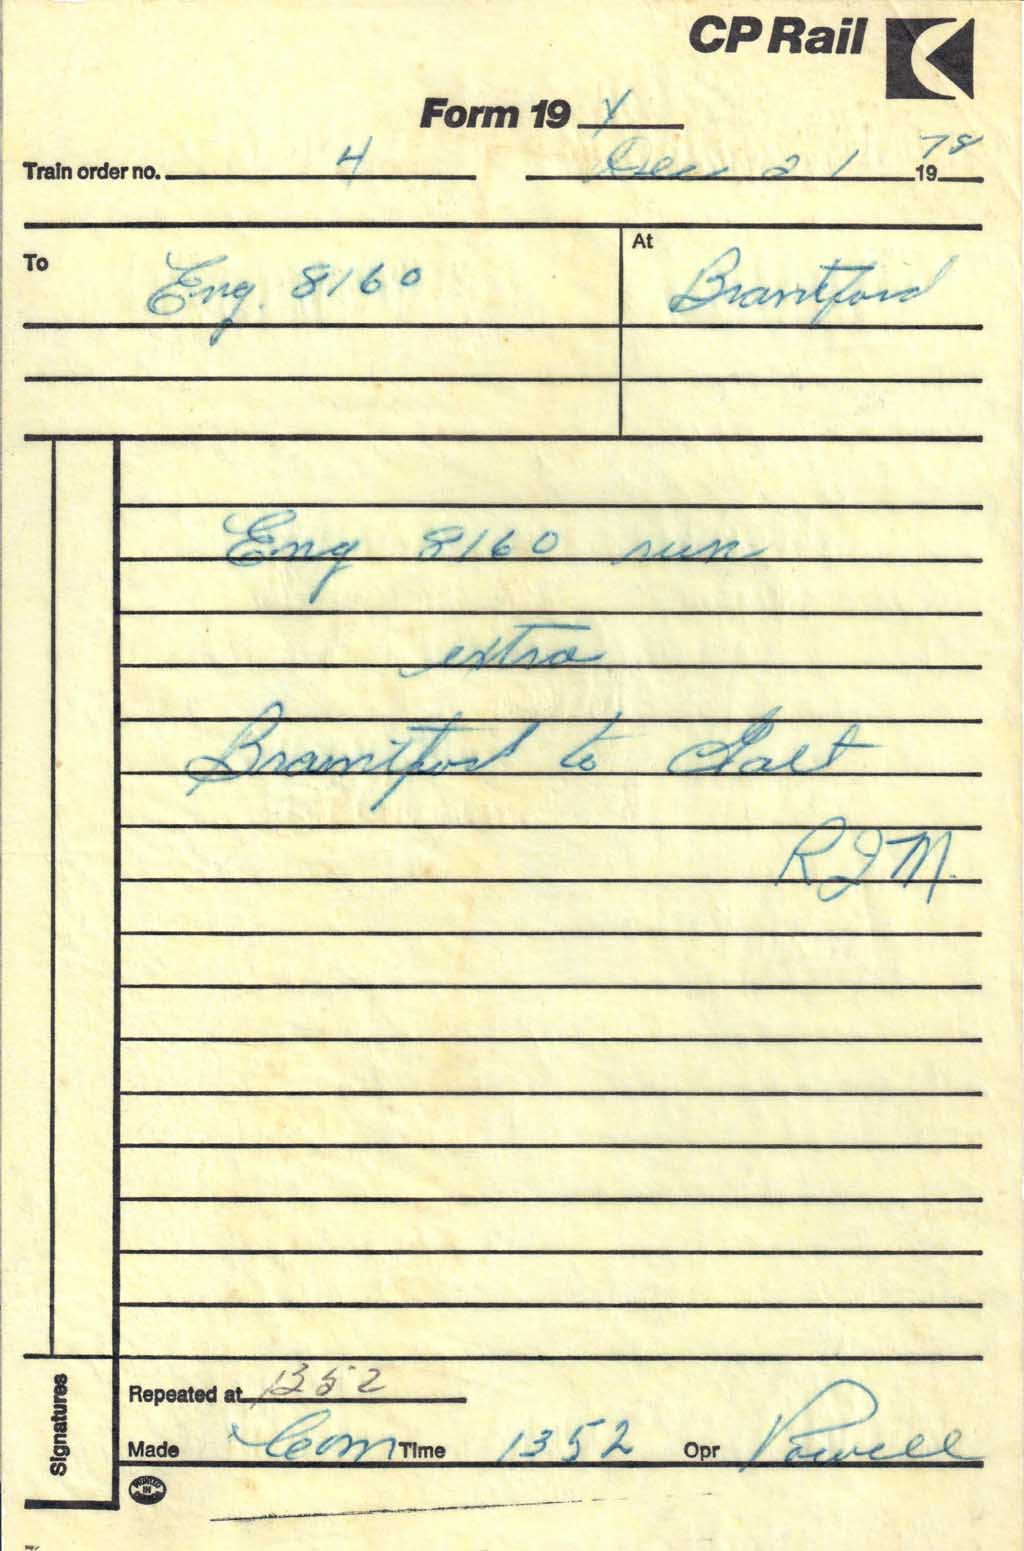 CP Rail
Form 19 Y
Train order no. 4 Dec 21 1978
To Eng. 8160 At Brantford
Eng 8160 run
extra
Brantford to Galt
RJM.
Signatures
Repeated at 1352
Made Com Time 1352 Opr Powell
PRINTED IN